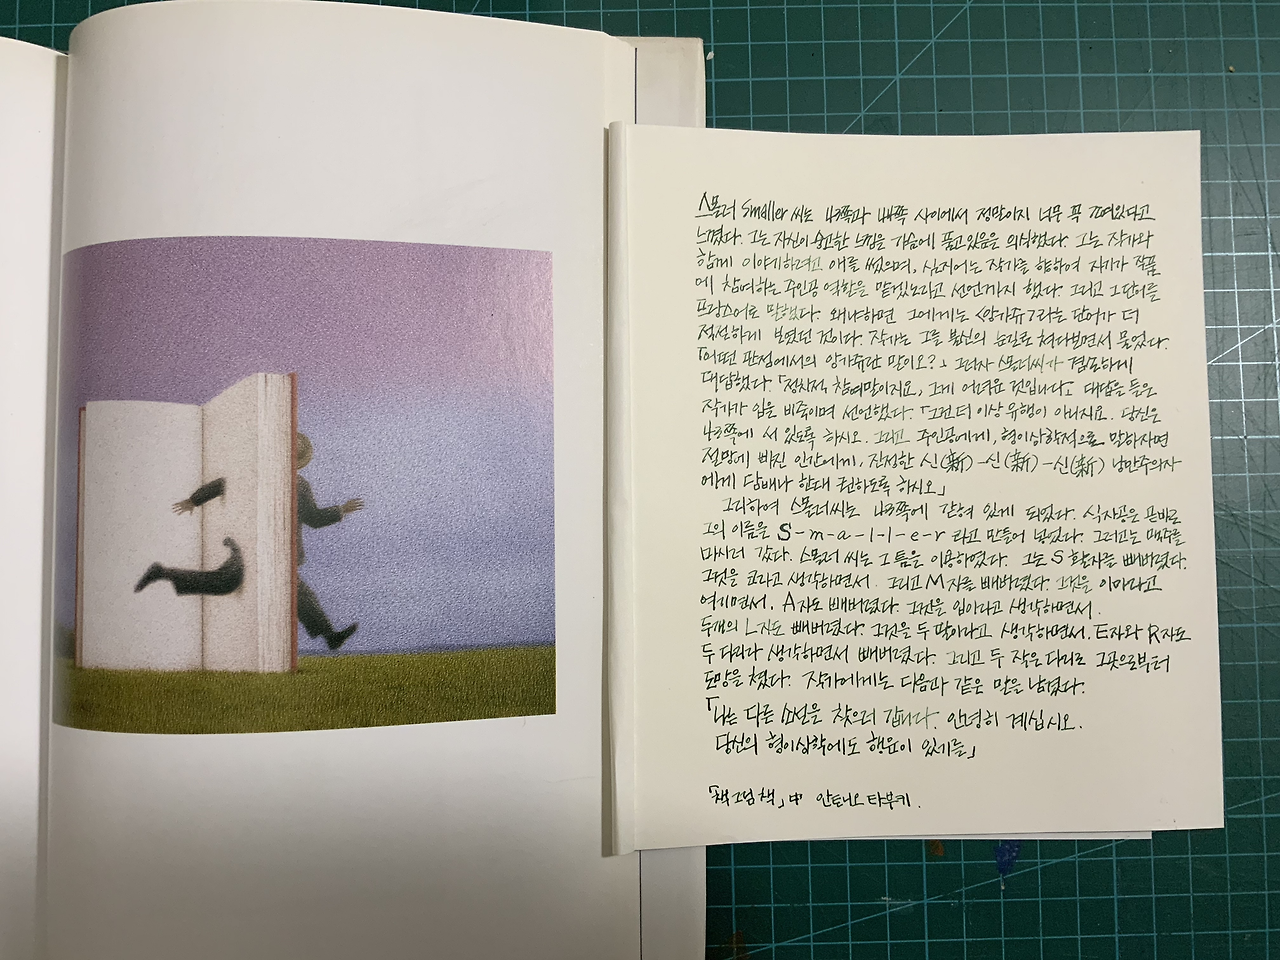 스몰러 Smaller 씨는 43쪽과 44쪽 사이에서 정말이지 너무 꼭 끼여있다고
느꼈다. 그는 자신이 숭고한 느낌을 가슴에 품고 있음을 의식했다. 그는 작가와
함께 이야기하려고 애를 썼으며, 심지어는 작가를 향하여 자기가 작품
에 참여하는 주인공 역할을 맡겠노라고 선언까지 했다. 그리고 그 단어를
프랑스어로 말했다. 왜냐하면 그에게는 <앙가쥬>라는 단어가 더
적절하게 보였던 것이다. 작가는 그를 불신의 눈길로 쳐다보면서 물었다.
「어떤 관점에서의 앙가쥬란 말이오?」 그러자 스몰러씨가 겸손하게
대답했다. 「정치적 참여말이지요, 그게 어려운 것입니다」 대답을 들은
작가가 입을 비죽이며 선언했다. 「그건 더 이상 유행이 아니지요. 당신은
43쪽에 서 있도록 하시오. 그리고 주인공에게, 형이상학적으로 말하자면
절망에 빠진 인간에게, 진정한 신(新)-신(新)-신(新) 낭만주의자
에게 담배나 한대 권하도록 하시오」
그리하여 스몰러씨는 43쪽에 갇혀 있게 되었다. 식자공은 곧바로
그의 이름을 S-m-a-l-l-e-r 라고 만들어 넣었다. 그러고는 맥주를
마시러 갔다. 스몰러 씨는 그 틈을 이용하였다. 그는 S 활자를 빼버렸다.
그것을 코라고 생각하면서. 그리고 M자를 빼버렸다. 그것을 이마라고
여기면서. A자도 빼버렸다. 그것을 입이라고 생각하면서.
두개의 L자도 빼버렸다. 그것을 두 팔이라고 생각하면서. E자와 R자도
두 다리라 생각하면서 빼버렸다. 그리고 두 작은 다리로 그곳으로부터
도망을 쳤다. 작가에게는 다음과 같은 말을 남겼다.
「나는 다른 소설을 찾으러 갑니다. 안녕히 계십시오.
당신의 형이상학에도 행운이 있기를」
「책그림책」中 안토니오 타부키.